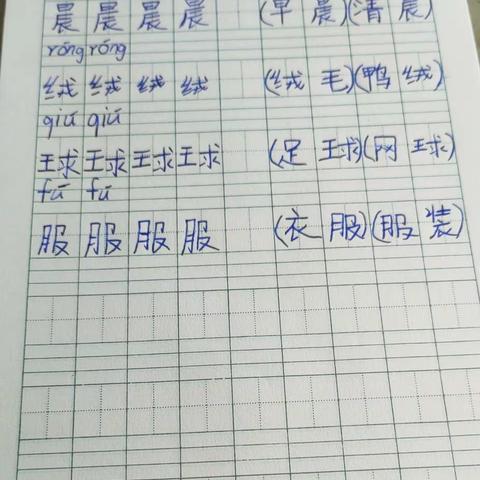 晨 晨 晨 晨 (早 晨)(清 晨)
róng róng
绒 绒 绒 绒 (绒 毛)(鸭 绒)
qiú qiú
球 球 球 球 (足 球)(网 球)
fú fú
服 服 服 服 (衣 服)(服 装)